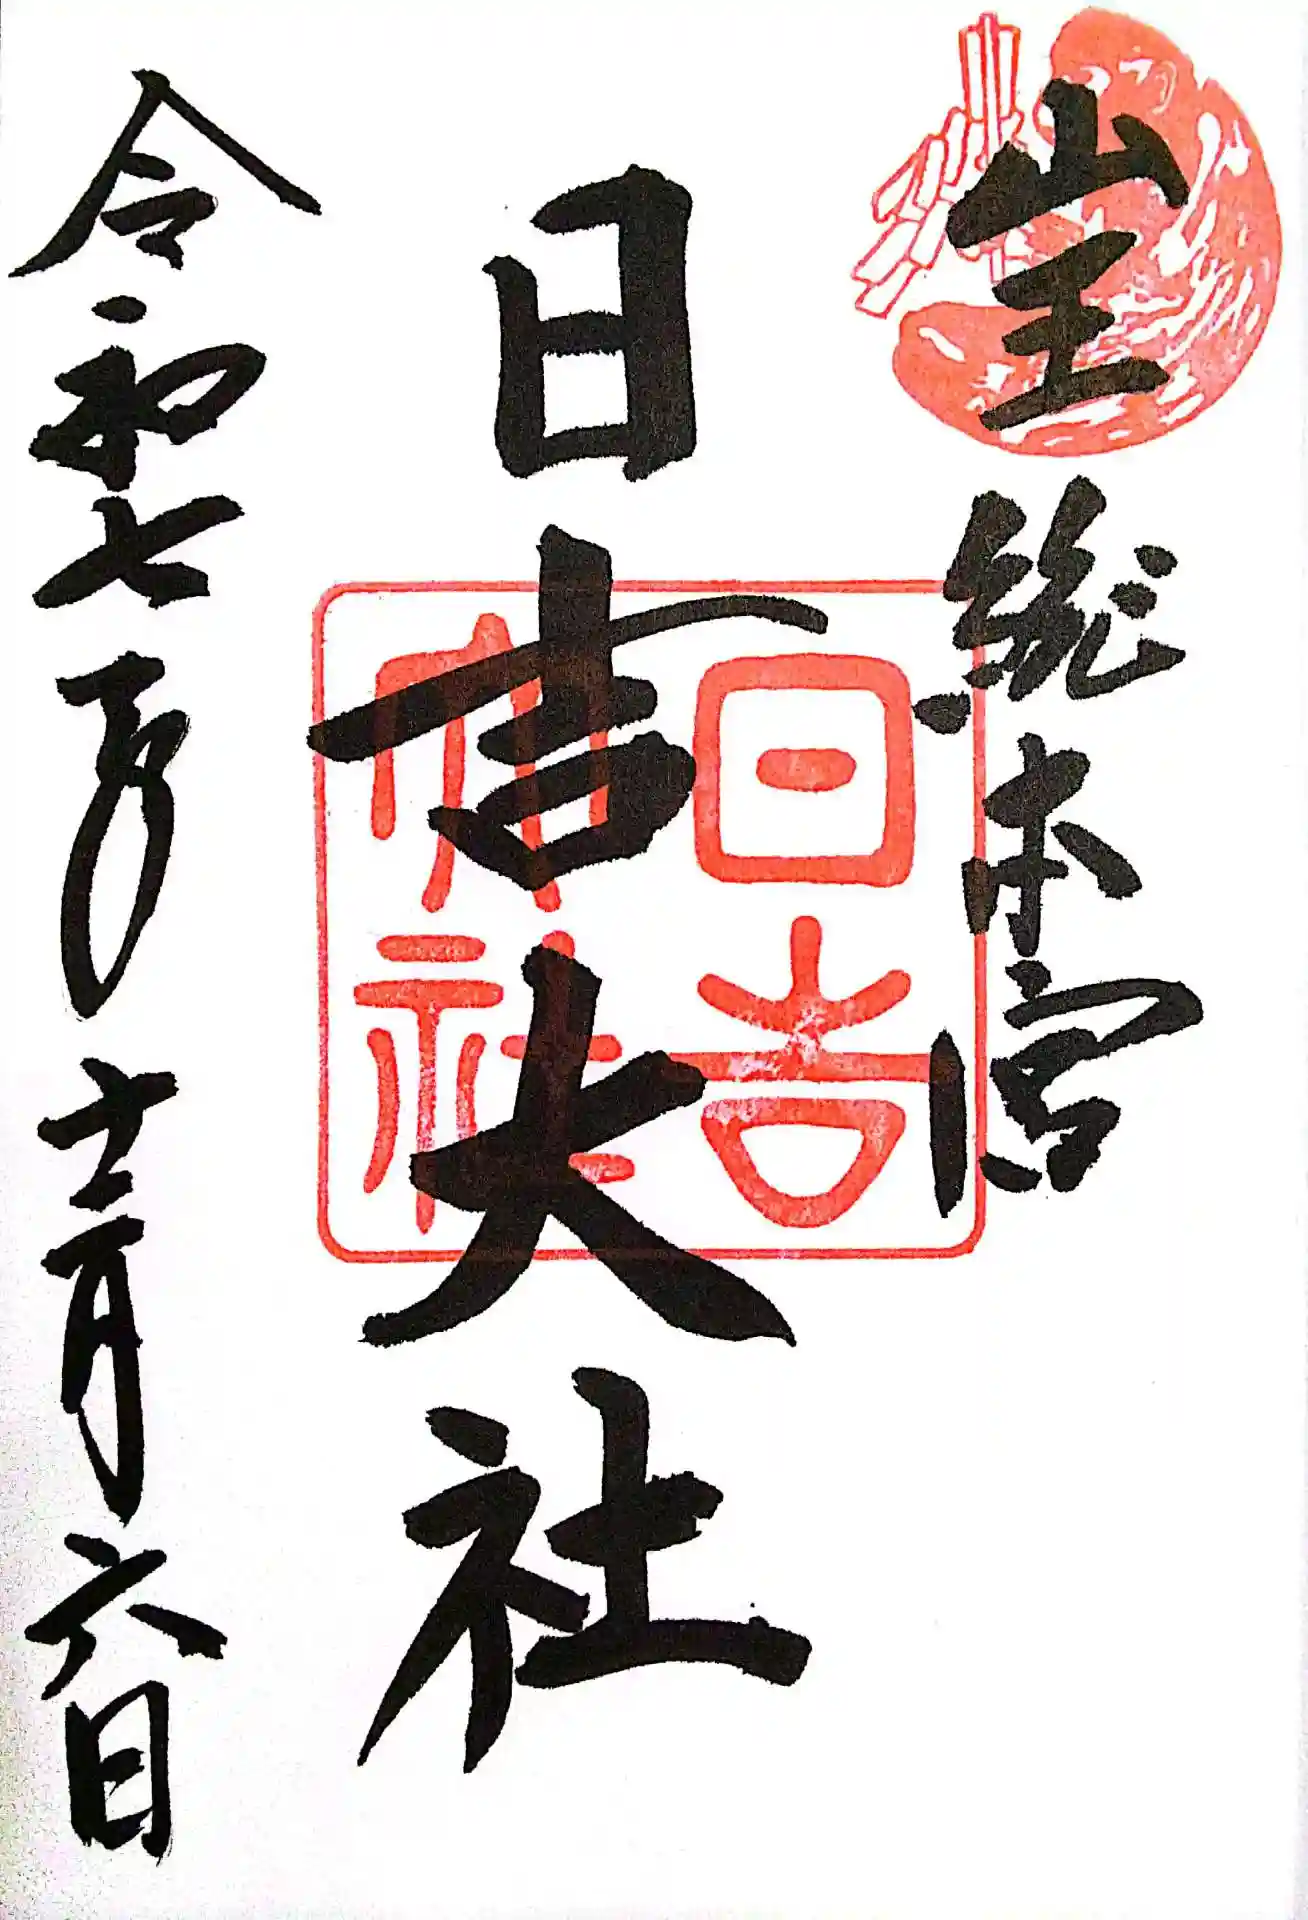 山王総本宮
日吉大社
日吉大社
令和七年十二月六日